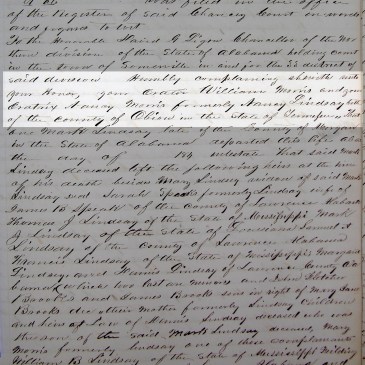 was filed in the office
of the Register of said Chancery Court in words
and figures to wit.
To the Honorable David G Ligon Chancellor of the Nor
thern division of the State of Alabama holding court
in the town of Somerville in and for the 33 district of
said division Humbly complaining sheweth unto
your Honor, your Orator William Morris and your
Oratrix Nancy Morris formerly Nancy Lindsay both
of the county of Obion in the State of Tennessee, That
one Mark Lindsay late of the County of Morgan
in the State of Alabama departed this life about
the day of 184 intestate That said Mark
Lindsay deceased left the following heirs at the time
of his death besides Mary Lindsay widow of said Mark
Lindsay and Speake formerly Lindsay wife of
James B Speake of the County of Lawrence Alabama
Thomas Lindsay of the State of Mississippi Mark
J Lindsay of the State of Louisiana Samuel
Lindsay of the County of Lawrence Alabama
Lindsay of the State of Mississippi Margaret
Lindsay and Dennis Lindsay of Lawrence County Ala
which two last are minors and John
Brooks and James Brooks in right of Mary Jane
Brooks dec their Mother formerly Lindsay Children
and heirs at Law of Lindsay deceased who was
the son of the said Mark Lindsay deceased, Nancy
Morris formerly Lindsay one of these complainants
William B Lindsay of the State of Mississippi